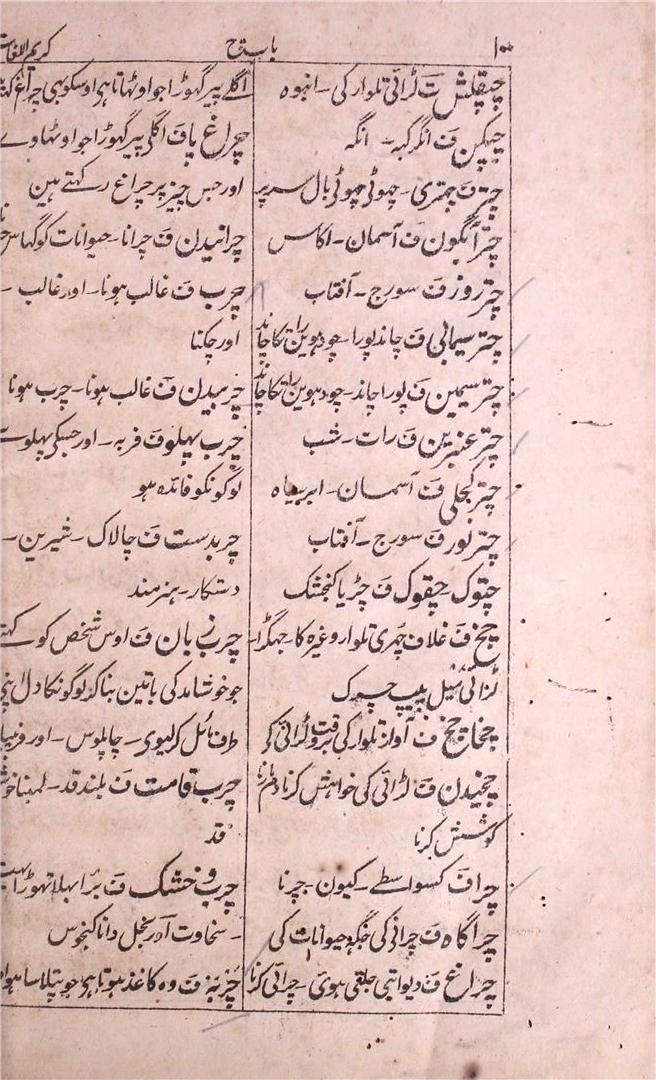 ۱۰۰ باب ج کریم اللغات
چپقلش ت لڑائی تلوار کی ۔ انبوہ
چپکن ف انگرکہہ ۔ انگہ
چتر ف چہتری ۔ چہوٹی چہوٹی بال سر پر
چتر آبگون ف آسمان ۔ اکاس
چتر روز ف سورج ۔ آفتاب
چتر سیمابی ف چاند پورا ۔ چودہوین رات کا چاند
چتر سیمین ف پورا چاند ۔ چودہوین رات کا چاند
چتر عنبرین ف رات ۔ شب
چتر کحلی ف آسمان ۔ ابر سیاہ
چتر نور ف سورج ۔ آفتاب
چتوک چقوک ف چڑیا کنجشک
چخ ف غلاف چہری تلوار وغیرہ کا ۔ جہگڑا ۔
لڑائی میل پیپ چرک
چخاچخ ف آواز تلوار کی بروقت لڑائی کو
چخیدن ف لڑائی کی خواہش کرنا دم مارنا
کوشش کرنا
چرا ف کسواسطے ۔ کیون ۔ چرنا
چراگاہ ف چرانی کی جگہ حیوانات کی
چراغ ف دیوا بتی جلتی ہوی ۔ چرائی کرنا
اگلے پیر گہوڑا جو اوٹہاتا ہی اوسکو بہی چراغ
چراغ پا ف اگلی پیر گہوڑا جو اوٹہاوے
اور جس چیز پر چراغ رکہتے ہین
چرانیدن ف چرانا ۔ حیوانات کو گہاس
چرب ف غالب ہونا ۔ اور غالب ۔
اور چکنا
چربیدن ف غالب ہونا ۔ چرب ہونا
چرب پہلو ف فربہ ۔ اور جسکی پہلو سے
لوگونکو فائدہ ہو
چربدست ف چالاک ۔ شیرین ۔
دستکار ۔ ہنرمند
چرب زبان ف اوس شخص کو کہتے
جو خوشامد کی باتین بنا کر لوگونکا دل اپنی
طرف مائل کرلیوی ۔ چاپلوس ۔ اور فریب
چرب قامت ف بلند قد ۔ لمبنا خوش
قد
چرب و خشک ف برا بہلا تہوڑا بہت
۔ سخاوت اور بخل دانا کنجوس
چربہ ف وہ کاغذ ہوتا ہی جو پتلا سا ہوا